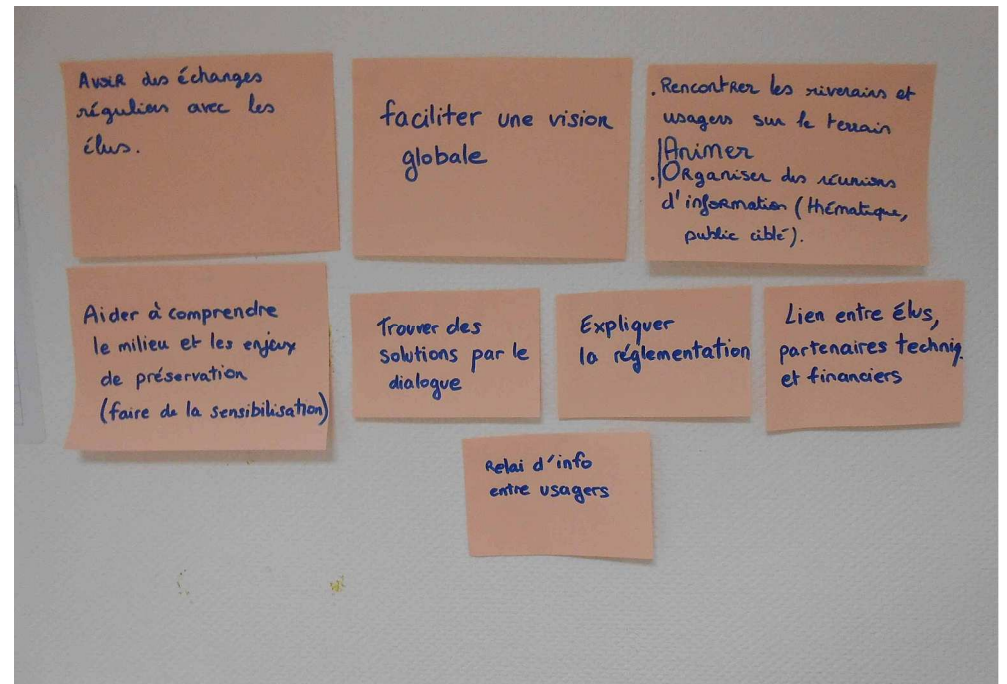 Avoir des échanges
réguliers avec les
élus.
faciliter une vision
globale
. Rencontrer les riverains et
usagers sur le terrain
Animer
. Organiser des réunions
d'information (thématique,
public ciblé).
Aider à comprendre
le milieu et les enjeux
de préservation
(faire de la sensibilisation)
Trouver des
solutions par le
dialogue
Expliquer
la réglementation
Lien entre élus,
partenaires techniq.
et financiers
Relai d'info
entre usagers